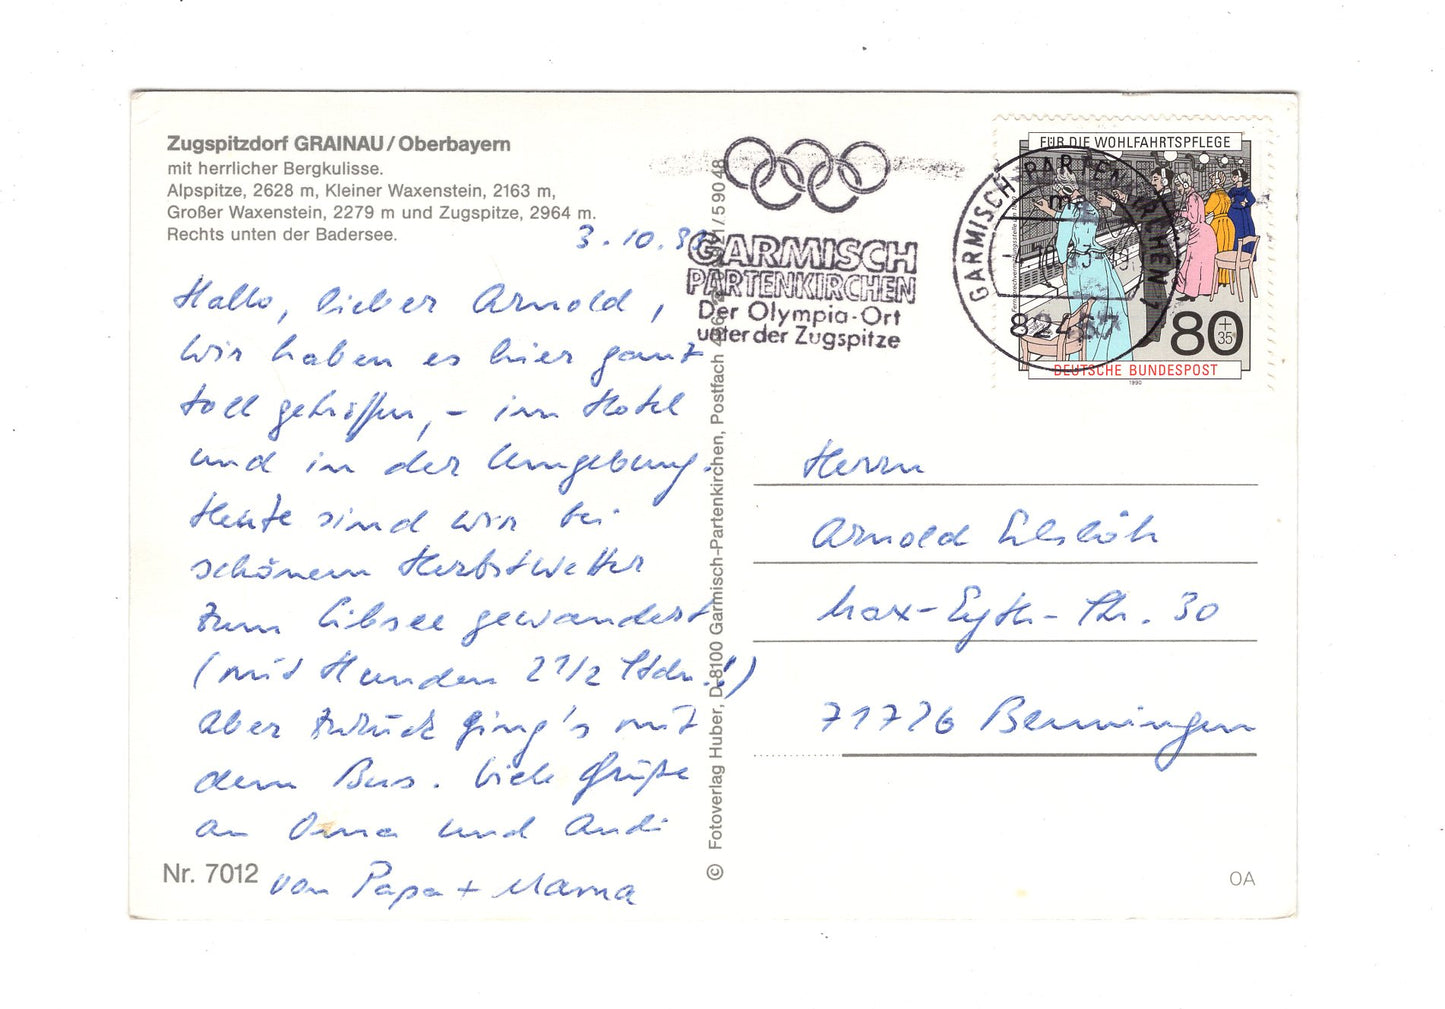 Zugspitzdorf GRAINAU/Oberbayern
mit herrlicher Bergkulisse.
Alpspitze, 2628 m, Kleiner Waxenstein, 2163 m,
Großer Waxenstein, 2279 m und Zugspitze, 2964 m.
Rechts unten der Badersee.
3.10.93
Hallo, lieber Arnold,
wir haben es hier ganz
toll getroffen, – im Hotel
und in der Umgebung.
Heute sind wir bei
schönem Herbstwetter
zum Eibsee gewandert
(mit Hunden 2 1/2 Stdn.!)
Aber zurück ging's mit
dem Bus. Viele Grüße
an Oma und Andi
von Papa + Mama
Nr. 7012
© Fotoverlag Huber, D-8100 Garmisch-Partenkirchen, Postfach
/59048
GARMISCH
PARTENKIRCHEN
Der Olympia-Ort
unter der Zugspitze
GARMISCH-PARTENKIRCHEN 1
82467
FÜR DIE WOHLFAHRTSPFLEGE
80 + 35
DEUTSCHE BUNDESPOST
1990
Herrn
Arnold
Max-Eyth-Str. 30
71726 Benningen
OA